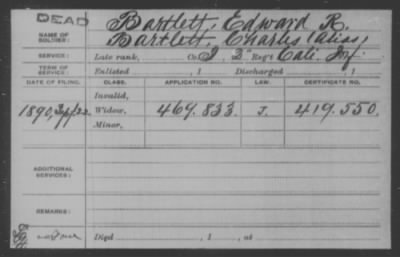 DEAD
NAME OF SOLDIER: Bartlett, Edward R.
Bartlett, Charles (Alias)
SERVICE: Late rank, Co. I, 2" Reg't Cali. Inf.
TERM OF SERVICE: Enlisted , 1 Discharged , 1
DATE OF FILING. CLASS. APPLICATION NO. LAW. CERTIFICATE NO.
Invalid,
1890, Sept 22 Widow, 469.833 J. 419.550
Minor,
ADDITIONAL SERVICES:
REMARKS:
Died , 1 , at